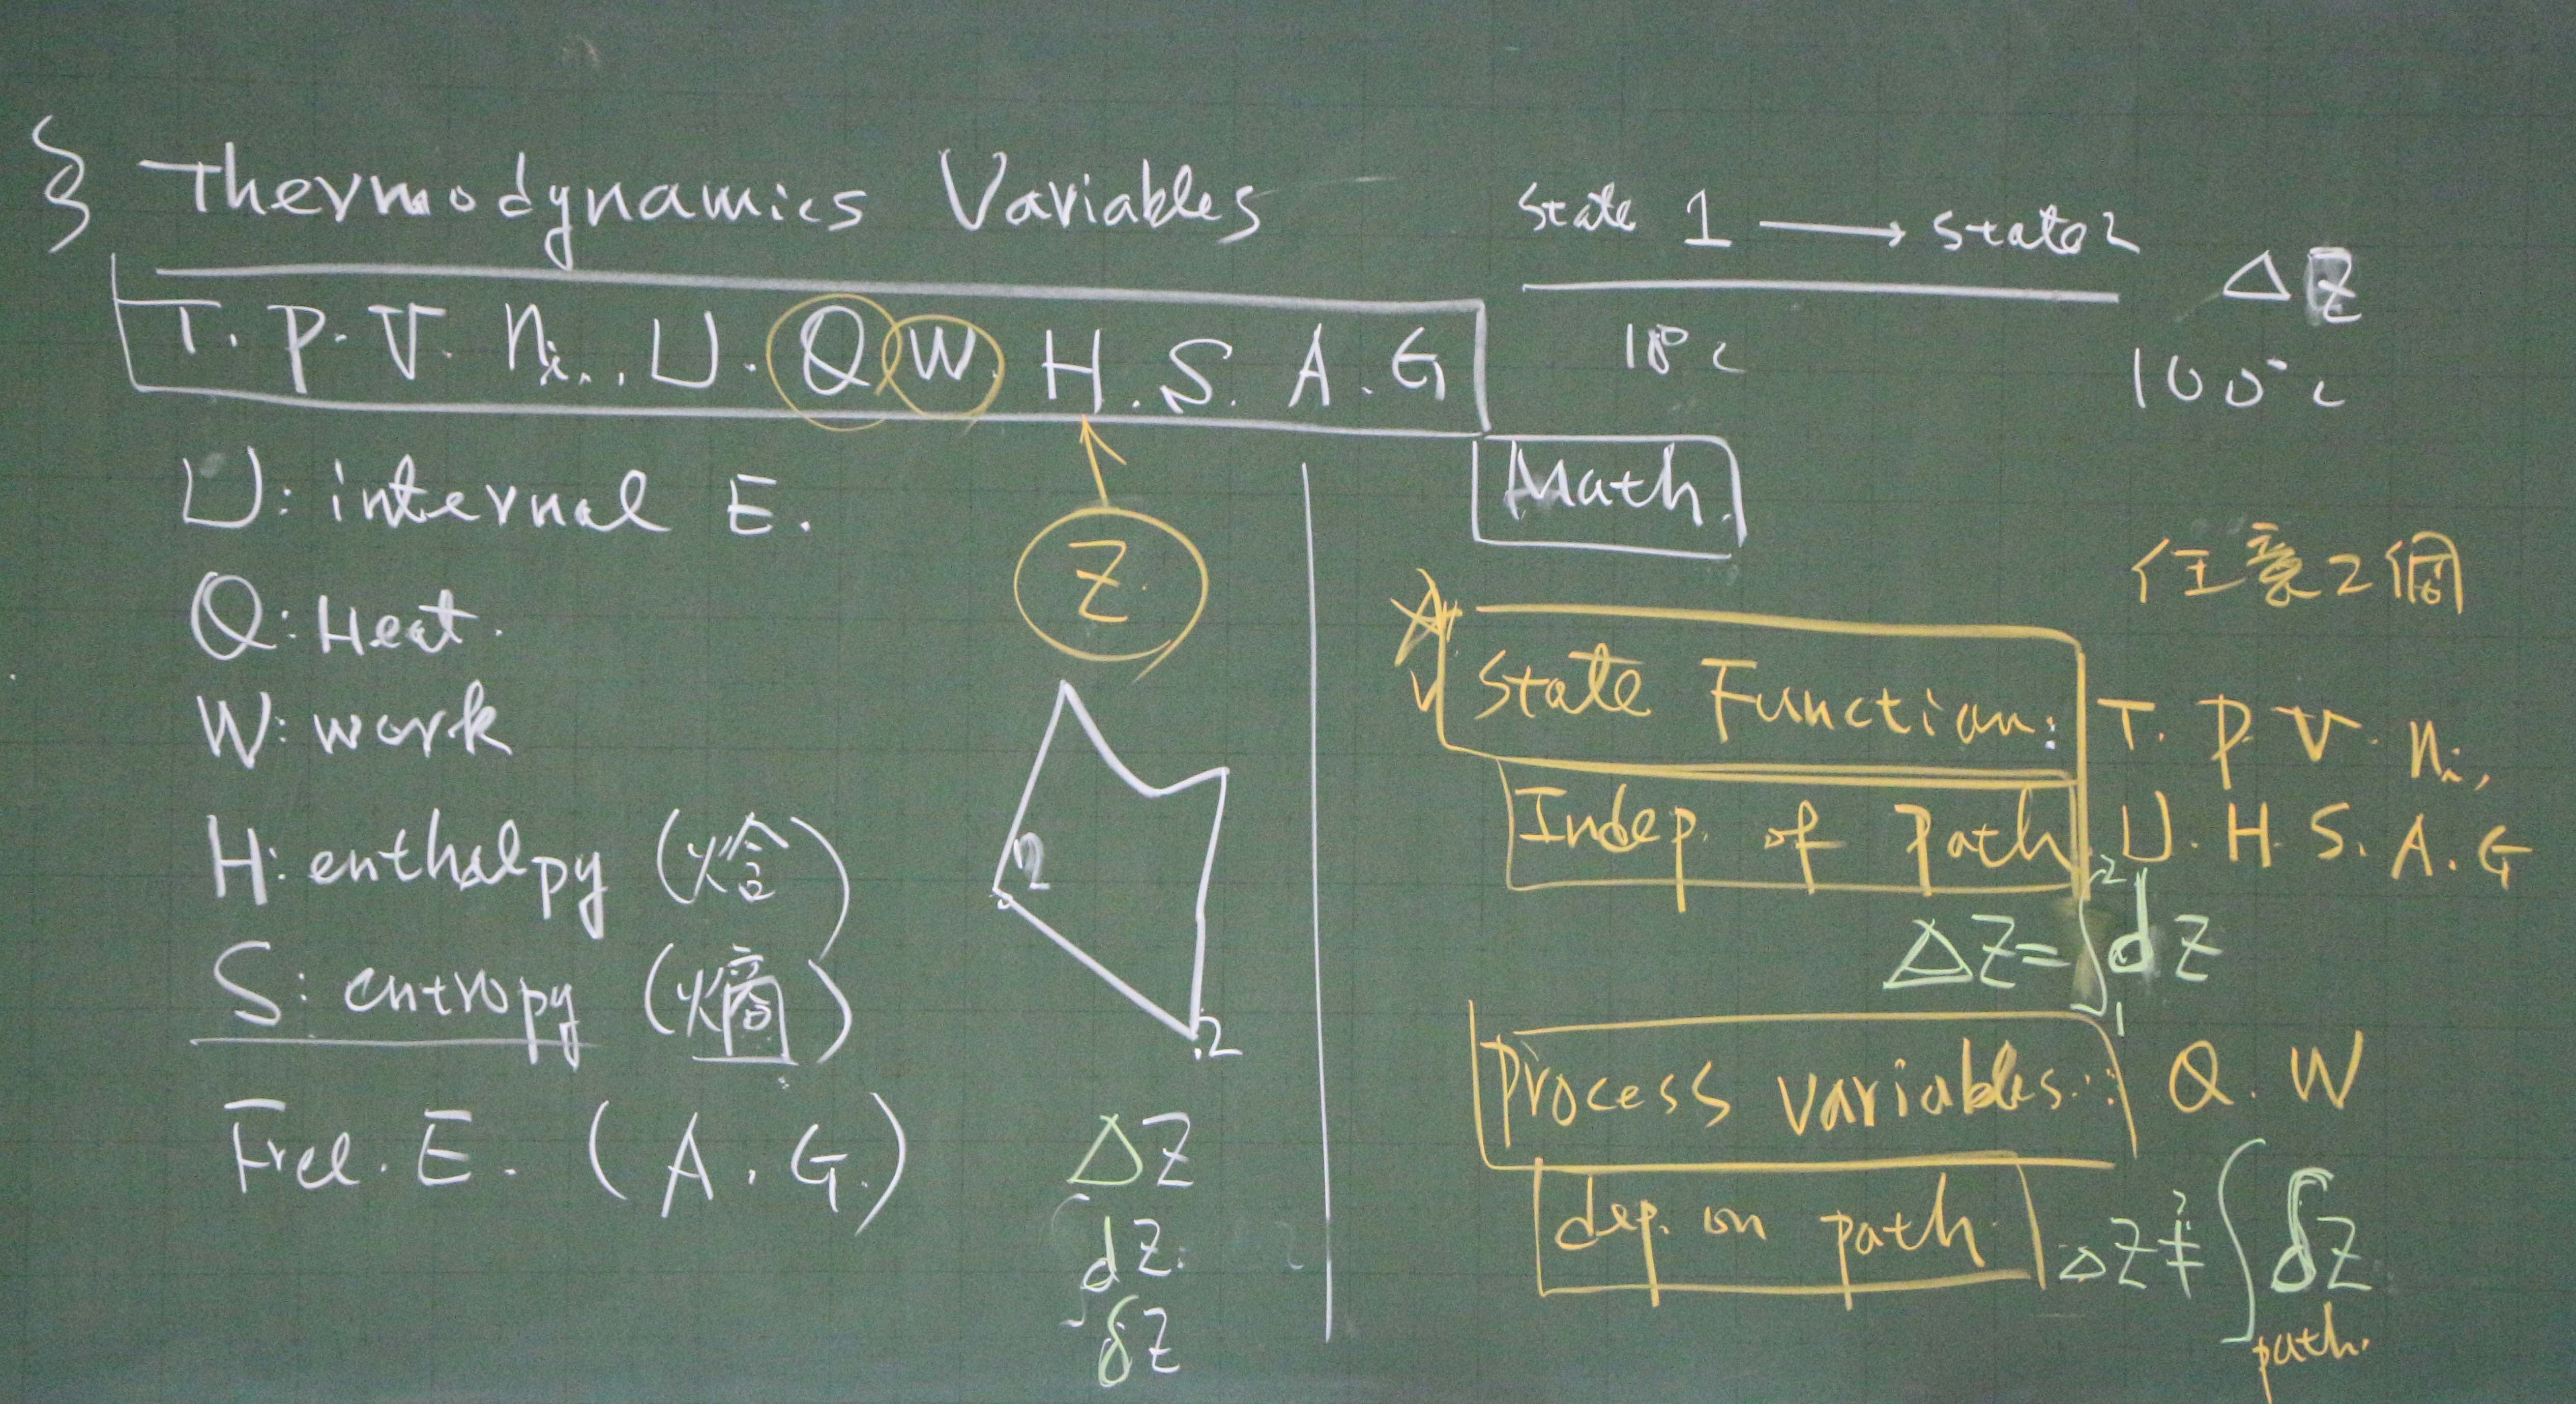 § Thermodynamics Variables
T. P. V. ni., U. Q W. H. S. A. G
U: internal E.
Q: Heat.
W: work
H: enthalpy (焓)
S: entropy (熵)
Free. E. (A. G.)
Z.
2
.2
ΔZ
dZ.
δZ
State 1 → State 2
ΔZ
100°C
Math.
任意2個
State Function: T. P. V. ni,
Indep. of Path U. H. S. A. G
ΔZ = ∫₁² dZ
Process variables: Q. W
dep. on path. ΔZ ≠ ∫ δZ
path.